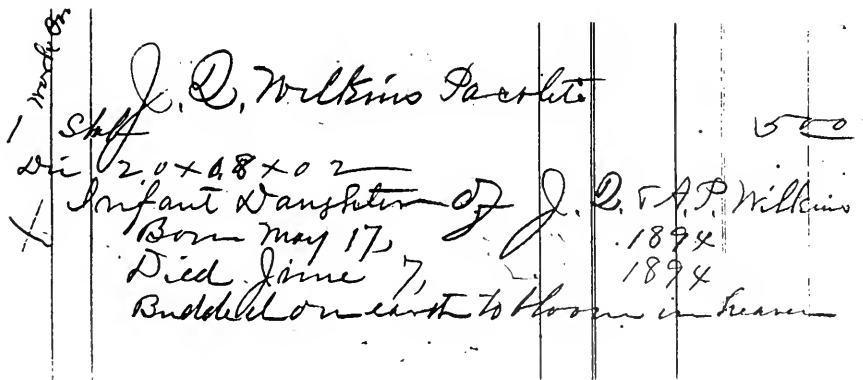 Work On
J. Q. Wilkins Pacolett
1 Slab 5 00
Die 2.0 x 0.8 x 0 2
Infant Daughter of J. Q. & A. P. Wilkins
Born May 17, 1894
Died June 7, 1894
Budded on earth to bloom in heaven